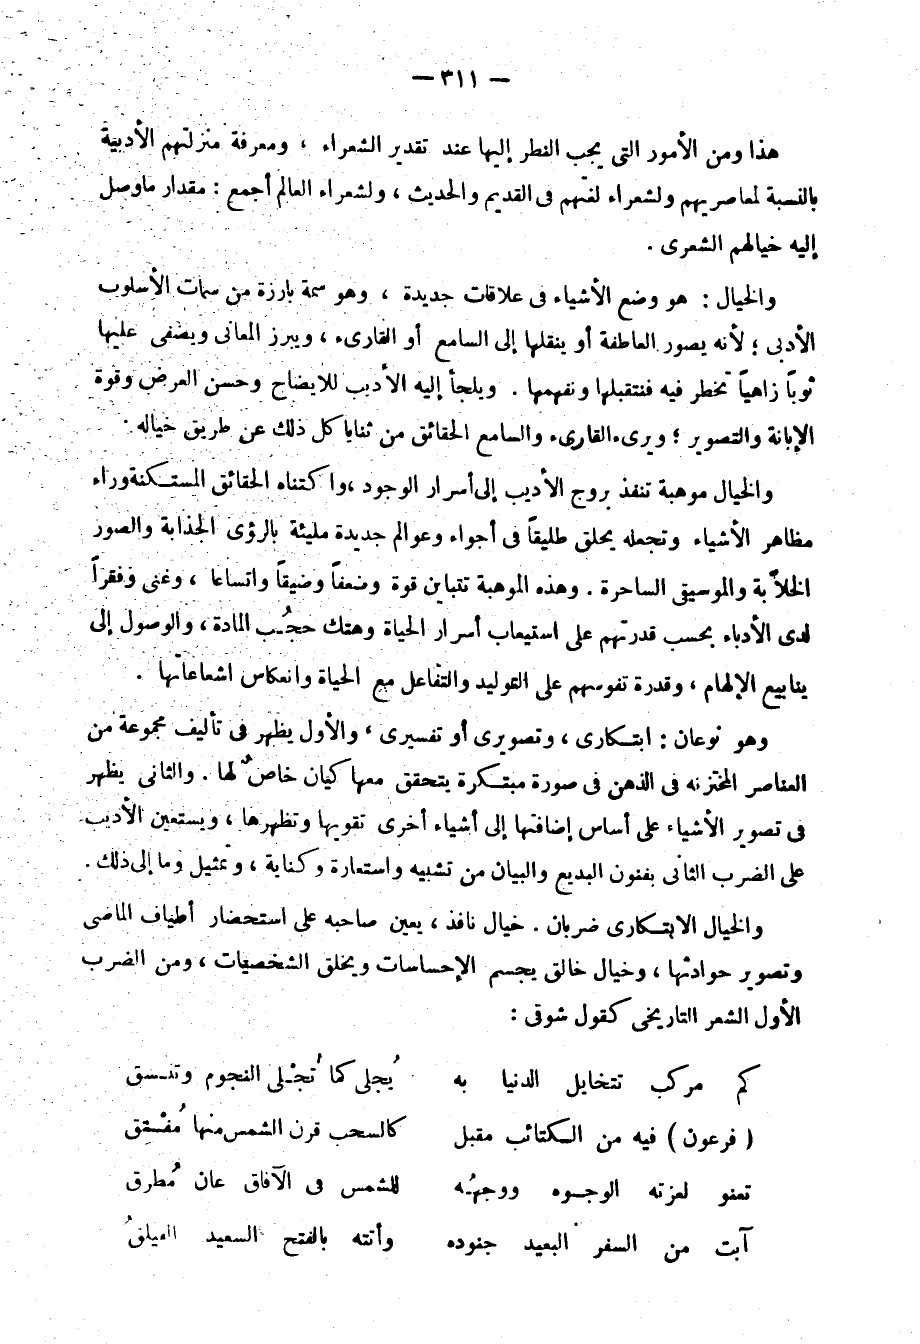 — ٣١١ —
هذا ومن الأمور التى يجب النظر إليها عند تقدير الشعراء ، ومعرفة منزلتهم الأدبية
بالنسبة لمعاصريهم ولشعراء لغتهم فى القديم والحديث ، ولشعراء العالم أجمع : مقدار ماوصل
إليه خيالهم الشعرى .
والخيال : هو وضع الأشياء فى علاقات جديدة ، وهو سمة بارزة من سمات الأسلوب
الأدبى ؛ لأنه يصور العاطفة أو ينقلها إلى السامع أو القارىء ، ويبرز المعانى ويضفى عليها
ثوباً زاهياً تخطر فيه فنتقبلها ونفهمها . ويلجأ إليه الأديب للايضاح وحسن العرض وقوة
الإبانة والتصوير ؛ ويرى القارىء والسامع الحقائق من ثنايا كل ذلك عن طريق خياله .
والخيال موهبة تنفذ بروح الأديب إلى أسرار الوجود ، واكتناه الحقائق المستكنة وراء
مظاهر الأشياء وتجعله يحلق طليقاً فى أجواء وعوالم جديدة مليئة بالرؤى الجذابة والصور
الخلاّبة والموسيقى الساحرة . وهذه الموهبة تتباين قوة وضعفاً وضيقاً واتساعا ، وغنى وفقراً
لدى الأدباء بحسب قدرتهم على استيعاب أسرار الحياة وهتك حجُب المادة ، والوصول إلى
ينابيع الإلهام ، وقدرة نفوسهم على التوليد والتفاعل مع الحياة وانعكاس اشعاعاتها .
وهو نوعان : ابتكارى ، وتصويرى أو تفسيرى ، والأول يظهر فى تأليف مجموعة من
العناصر المختزنه فى الذهن فى صورة مبتكرة يتحقق معها كيان خاصٌ لها . والثانى يظهر
فى تصوير الأشياء على أساس إضافتها إلى أشياء أخرى تقويها وتظهرها ، ويستعين الأديب
على الضرب الثانى بفنون البديع والبيان من تشبيه واستعارة وكناية ، وتمثيل وما إلى ذلك .
والخيال الابتكارى ضربان . خيال نافذ ، يعين صاحبه على استحضار أطياف الماضى
وتصوير حوادثها ، وخيال خالق يجسم الإحساسات ويخلق الشخصيات ، ومن الضرب
الأول الشعر التاريخى كقول شوقى :
كم مركب تتخايل الدنيا به يُجلى كما تُجْلى النجوم وتنسق
( فرعون ) فيه من الكتائب مقبل كالسحب قرن الشمس منها مُفتق
تعنو لعزته الوجوه ووجهُه للشمس فى الآفاق عان مُطرق
آبت من السفر البعيد جنوده وأتته بالفتح السعيد الفيلقُ